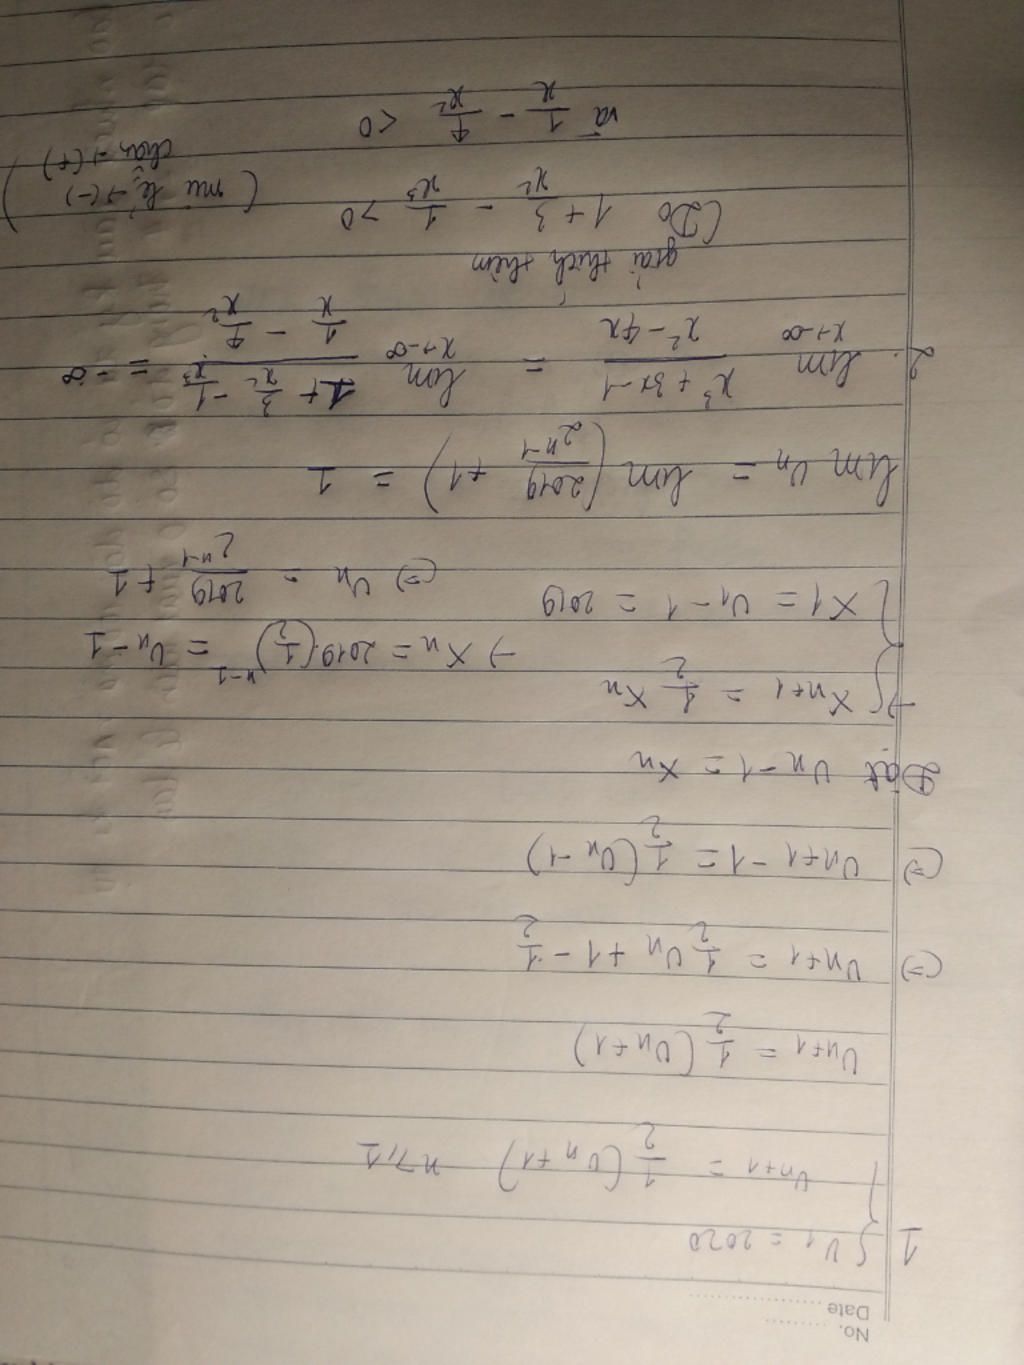 No. ..........
Date ....................
1 { U1 = 2020
Un+1 = 1/2 (Un+1) n ≥ 1
Un+1 = 1/2 (Un+1)
(=) Un+1 = 1/2 Un + 1 - 1/2
(=) Un+1 - 1 = 1/2 (Un - 1)
Đặt Un - 1 = xn
→ { xn+1 = 1/2 xn → xn = 2019.(1/2)^n-1 = Un - 1
x1 = U1 - 1 = 2019 (=) Un = 2019/2^n-1 + 1
lim Un = lim (2019/2^n-1 + 1) = 1
2. lim x→-∞ (x³ + 3x - 1)/(x² - 4x) = lim x→-∞ (1 + 3/x² - 1/x³)/(1/x - 4/x²) = -∞
giải thích thêm
(Do 1 + 3/x² - 1/x³ > 0 (mũ lẻ → (-)
chẵn → (+))
và 1/x - 4/x² < 0